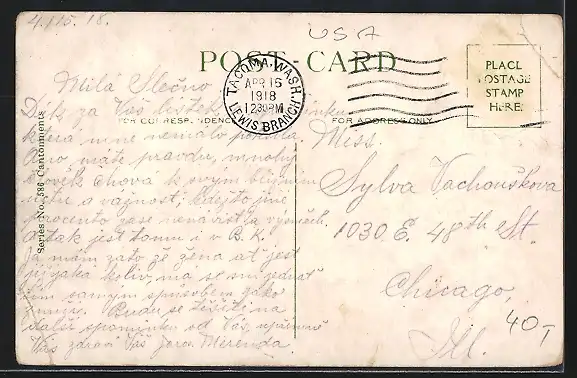 4./15. 18.
USA
POST-CARD
TACOMA, WASH.
APR 15
1918
12 30 PM
LEWIS BRANCH
PLACE
POSTAGE
STAMP
HERE.
FOR CORRESPONDENCE
FOR ADDRESS ONLY
Series No. 586 Cantonments
Milá Slečno
Dík za Váš lístek
která mne nemálo
Ano, máte pravdu, mnohý
člověk chová k svým bližním
úctu a vážnost, kdežto jiné
procento zase nenávist a
A tak jest tomu i v B. K.
Já mám za to že žena ať jest
jakákoliv, má se s ní jednat
tím samým způsobem jako
Budu se těšiti na
další spomínku od Vás, upřímně
Vás zdraví Váš Jaro. Merenda.
Miss.
Sylva Vachouškova
1030 E. 48th St.
Chicago,
Ill.
40,-